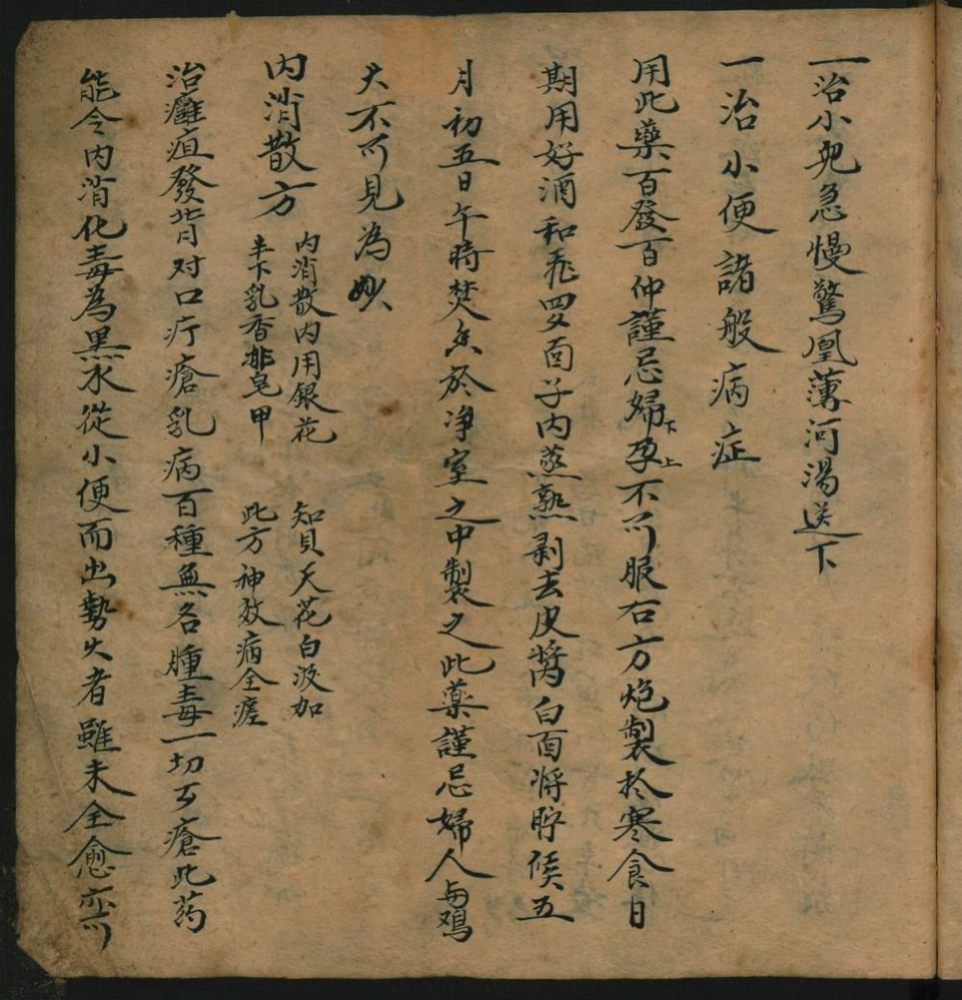 一治小兒急慢驚風薄河湯送下
一治小便諸般病症
用此藥百發百仲謹忌婦下孕上不可服右方炮製於寒食日
期用好酒和飛四兩面子內蒸熟剥去皮醬白面將貯候五
月初五日午時焚香於净室之中製之此藥謹忌婦人与鸡
犬不可見為妙
內消散方
內消散內用銀花
半下乳香排皂甲
知貝天花白汲加
此方神效病全瘥
治癰疽發背对口疔瘡乳病百種無名腫毒一切歹瘡此药
能令內消化毒為黑水從小便而出勢大者雖未全愈亦可